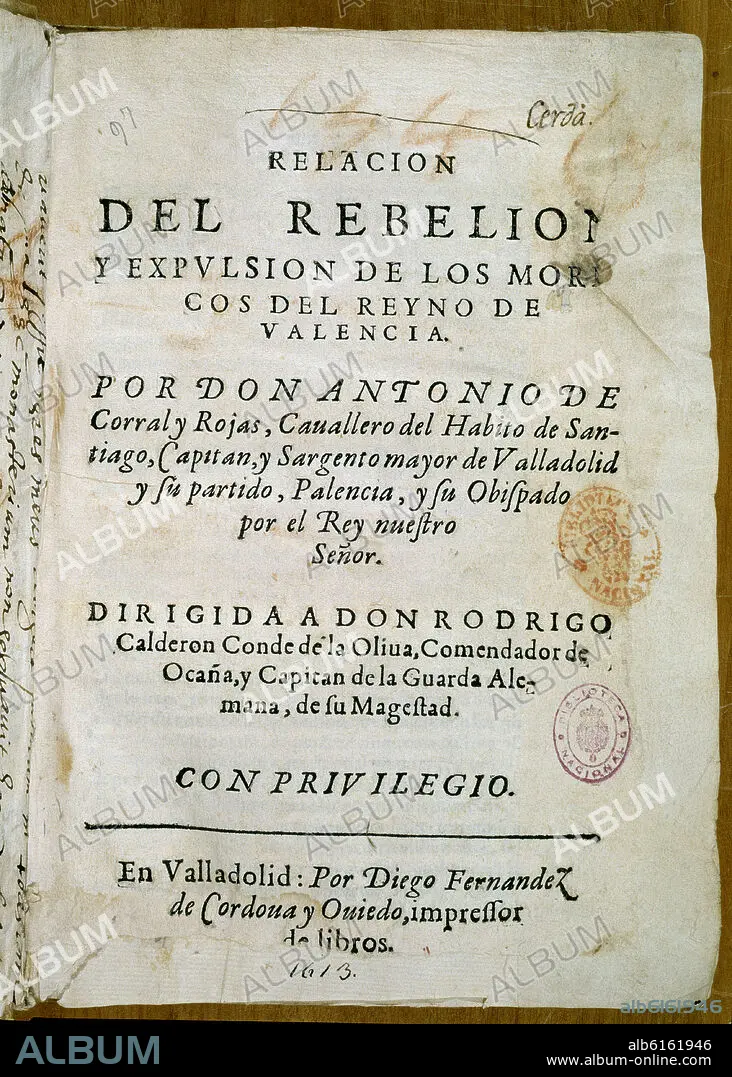 Cerdà.
RELACION
DEL REBELION
Y EXPVLSION DE LOS MORIS
COS DEL REYNO DE
VALENCIA.
POR DON ANTONIO DE
Corral y Rojas, Cauallero del Habito de San-
tiago, Capitan, y Sargento mayor de Valladolid
y ſu partido, Palencia, y ſu Obiſpado
por el Rey nueſtro
Señor.
DIRIGIDA A DON RODRIGO
Calderon Conde de la Oliua, Comendador de
Ocaña, y Capitan de la Guarda Ale-
mana, de ſu Mageſtad.
BIBLIOTECA NACIONAL
CON PRIVILEGIO.
En Valladolid: Por Diego Fernandez
de Cordoua y Ouiedo, impreſſor
de libros.
1613.
ALBUM
alb6161946
www.album-online.com